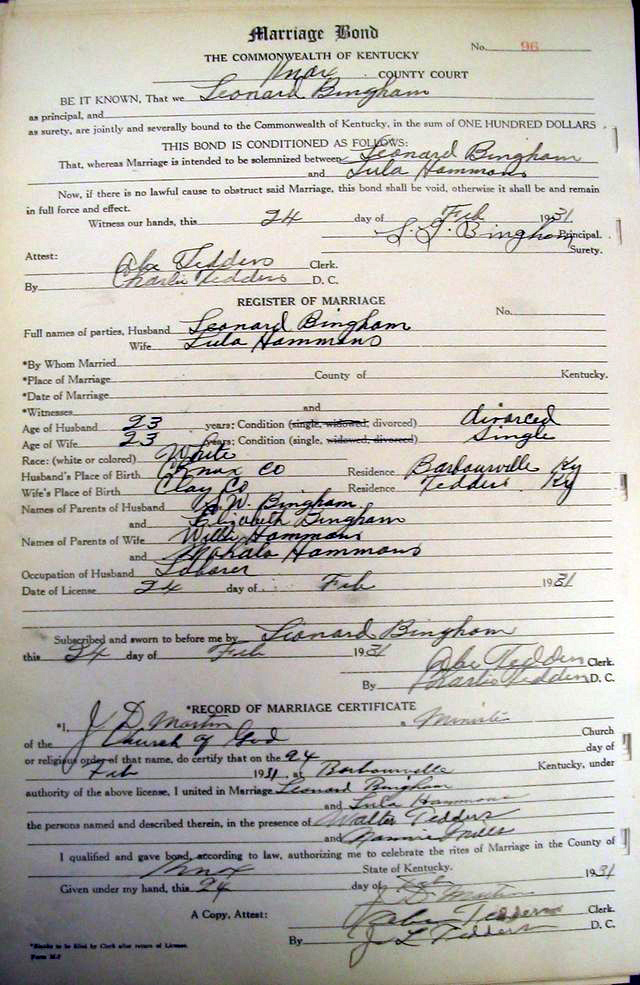 Marriage Bond
No. 96
THE COMMONWEALTH OF KENTUCKY
Knox COUNTY COURT
BE IT KNOWN, That we Leonard Bingham
as principal, and
as surety, are jointly and severally bound to the Commonwealth of Kentucky, in the sum of ONE HUNDRED DOLLARS
THIS BOND IS CONDITIONED AS FOLLOWS:
That, whereas Marriage is intended to be solemnized between Leonard Bingham
and Lula Hammons
Now, if there is no lawful cause to obstruct said Marriage, this bond shall be void, otherwise it shall be and remain
in full force and effect.
Witness our hands, this 24 day of Feb 1931
Bingham Principal.
Surety.
Attest:
Abe Tedders Clerk.
By Charlie Tedders D. C.
REGISTER OF MARRIAGE
No.
Full names of parties, Husband Leonard Bingham
Wife Lula Hammons
*By Whom Married
*Place of Marriage County of Kentucky.
*Date of Marriage
*Witnesses and
Age of Husband 23 years; Condition (single, widowed, divorced) divorced
Age of Wife 23 years; Condition (single, widowed, divorced) Single
Race: (white or colored) White
Husband's Place of Birth Knox Co Residence Barbourville Ky
Wife's Place of Birth Clay Co Residence Tedders Ky
Names of Parents of Husband W. Bingham
and Elizabeth Bingham
Names of Parents of Wife Willie Hammons
and Mahala Hammons
Occupation of Husband Laborer
Date of License 24 day of Feb 1931
Subscribed and sworn to before me by Leonard Bingham
this 24 day of Feb 1931
Abe Tedders Clerk.
By Charlie Tedders D. C.
*RECORD OF MARRIAGE CERTIFICATE
*I, J D Martin a Minister
of the Church of God Church
or religious order of that name, do certify that on the 24 day of
Feb 1931 at Barbourville Kentucky, under
authority of the above license, I united in Marriage Leonard Bingham
and Lula Hammons
the persons named and described therein, in the presence of Walter Tedders
and Nannie Mills
I qualified and gave bond, according to law, authorizing me to celebrate the rites of Marriage in the County of
Knox State of Kentucky.
Given under my hand, this 24 day of Feb 1931
J D Martin
A Copy, Attest: Abe Tedders Clerk.
By J L Tedders D. C.
*Blanks to be filled by Clerk after return of License.